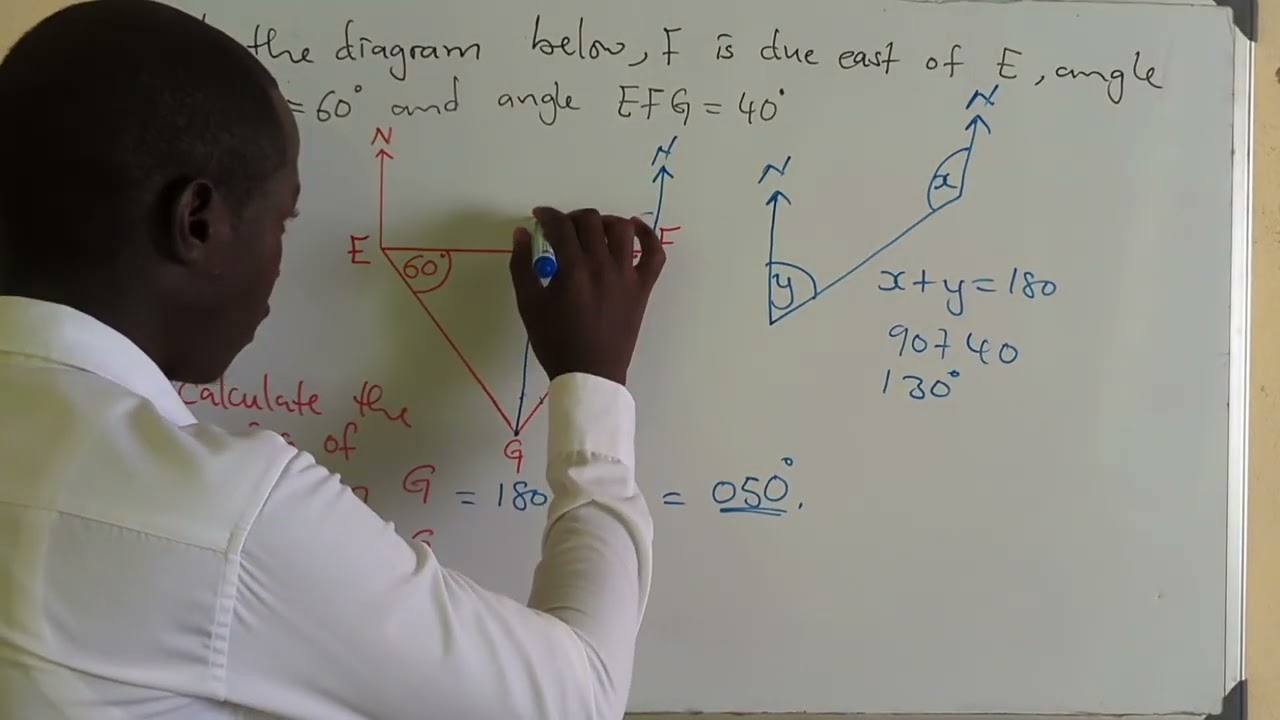 the diagram below, F is due east of E, angle
=60° and angle EFG = 40°
N
N
N
N
E
60°
F
x
y
x+y=180
90+40
130°
calculate the
of
G
G = 180 = 050°.
G